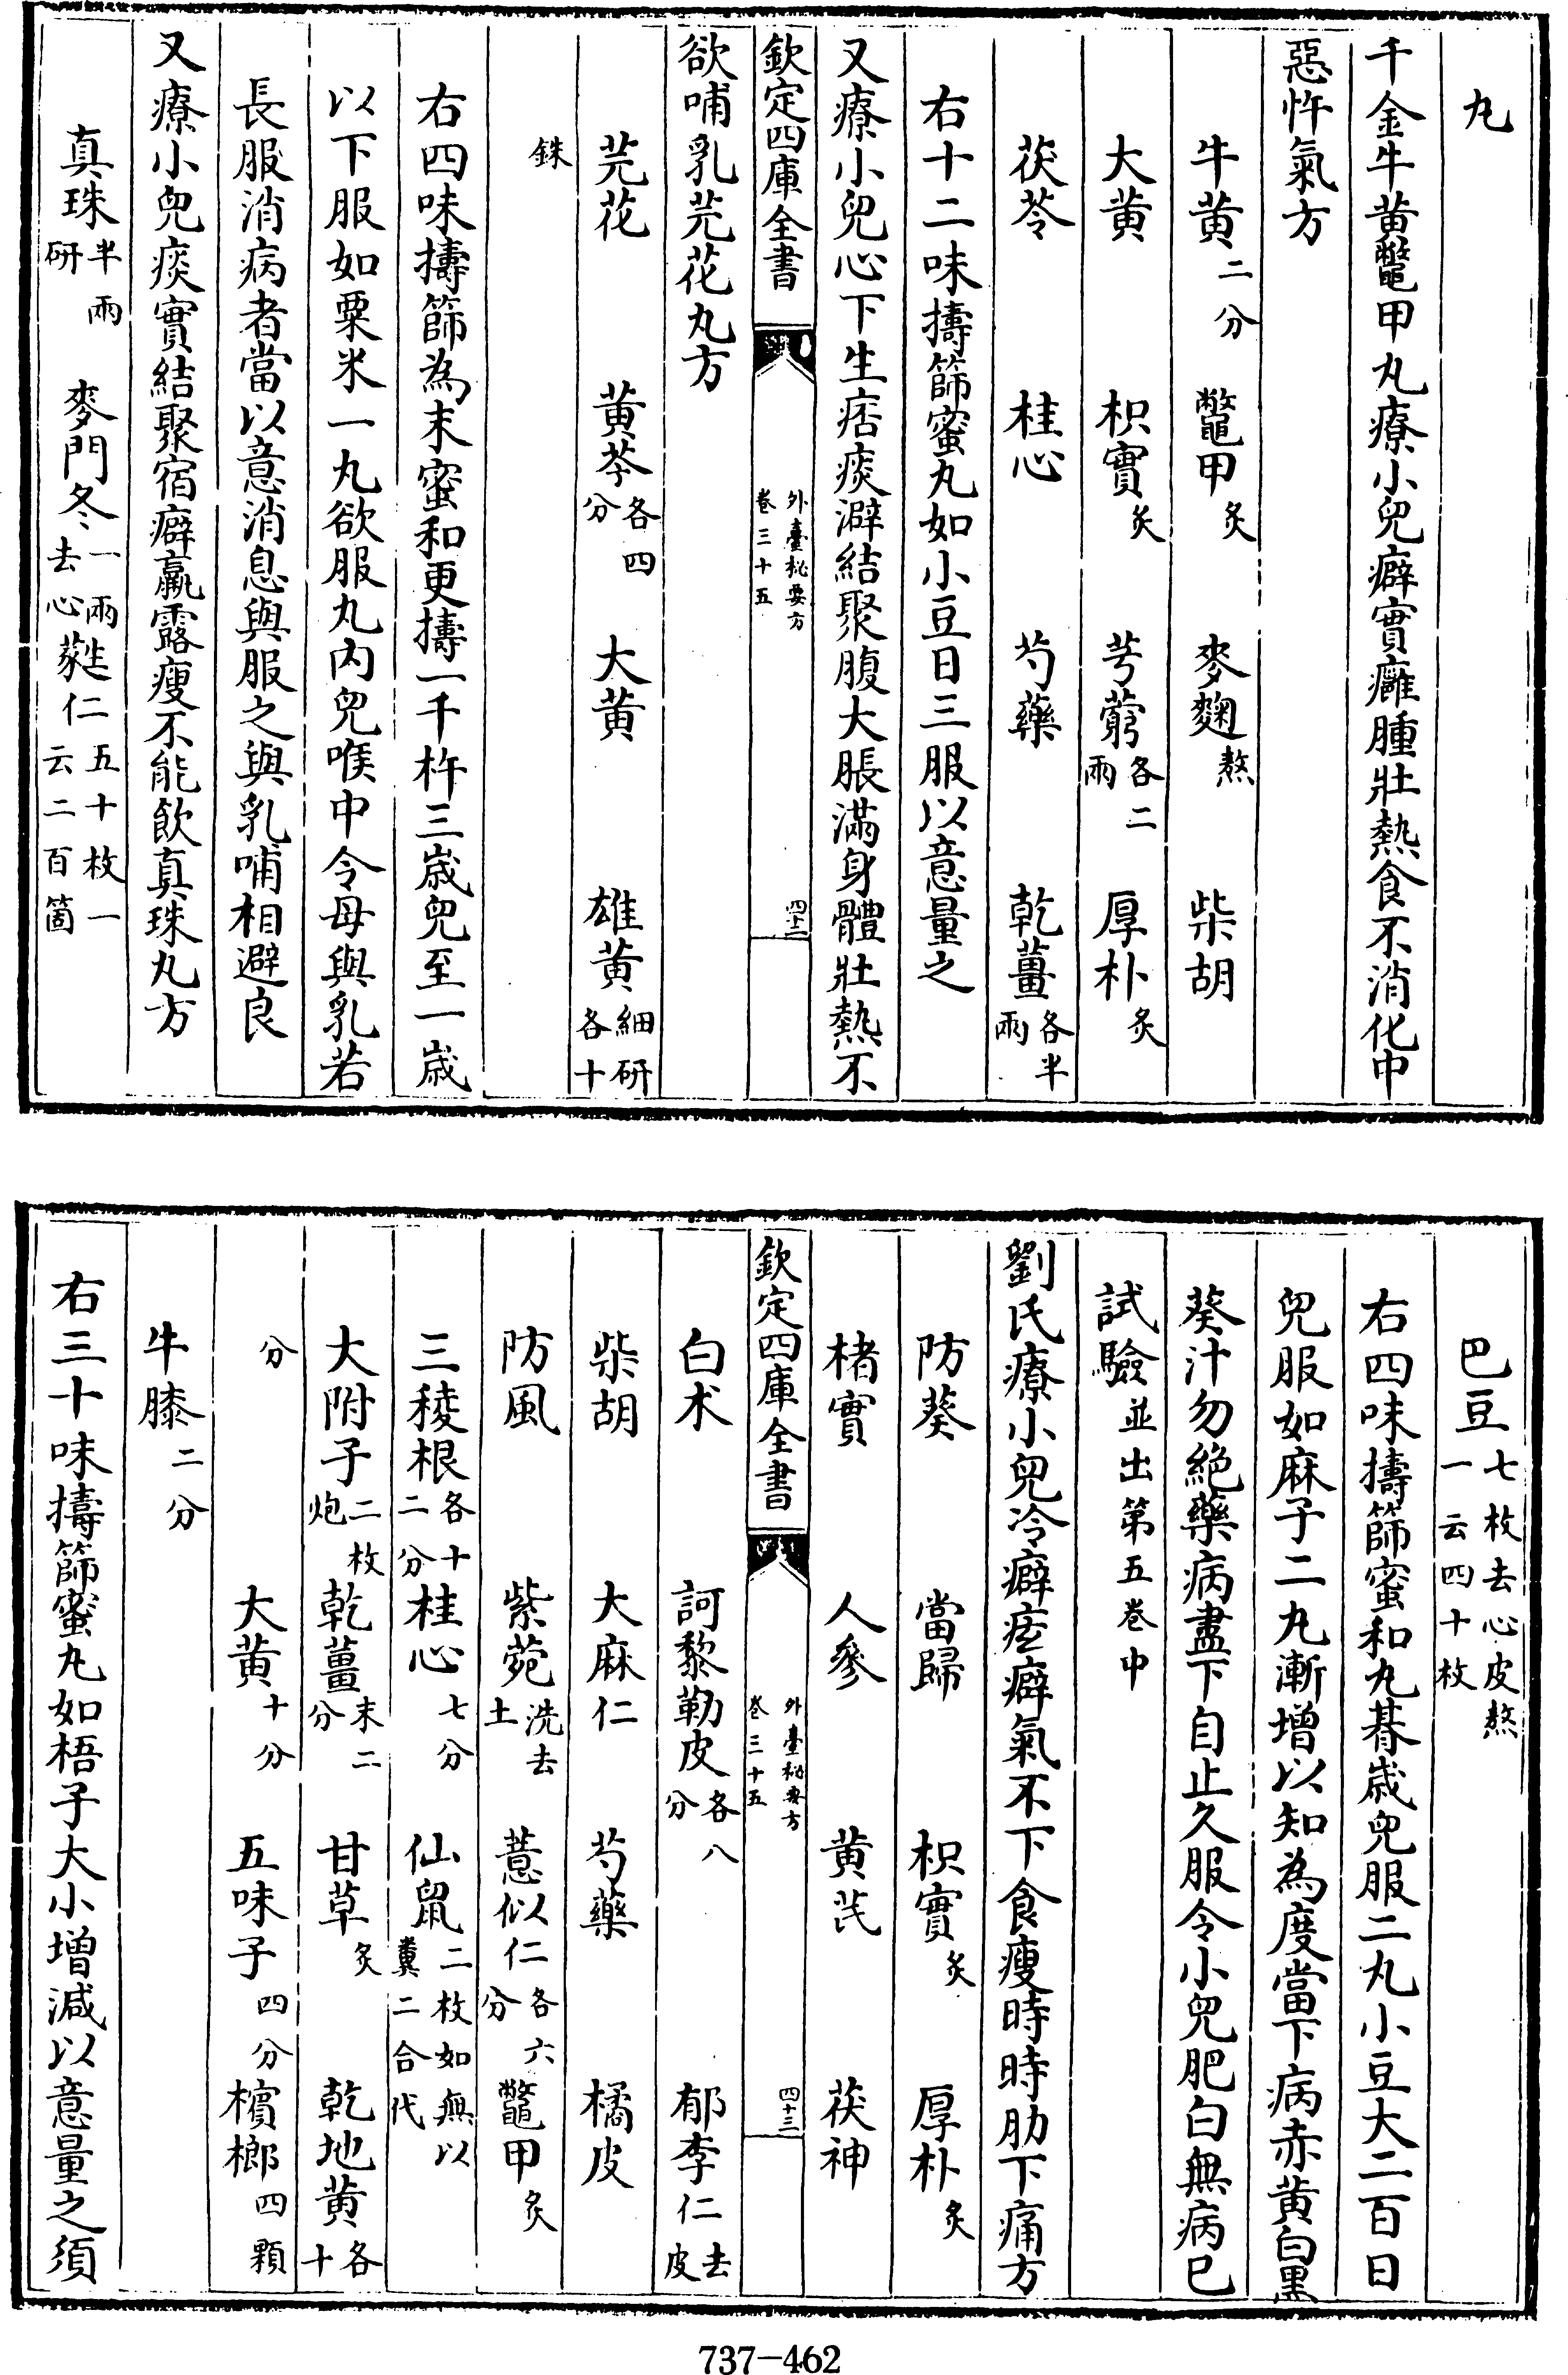 丸
千金牛黄鼈甲丸療小兒癖實癰腫壯熱食不消化中
惡忤氣方
牛黄二分 鼈甲炙 麥麴熬 柴胡
大黄 枳實炙 芎藭各二兩 厚朴炙
茯苓 桂心 芍藥 乾薑各半兩
右十二味擣篩蜜丸如小豆日三服以意量之
又療小兒心下生痞痰澼結聚腹大脹滿身體壯熱不
欽定四庫全書 外臺秘要方 卷三十五 四十二
欲哺乳芫花丸方
芫花 黄芩各四分 大黄 雄黄細研各十
銖
右四味擣篩為末蜜和更擣一千杵三歲兒至一歲
以下服如粟米一丸欲服丸内兒喉中令母與乳若
長服消病者當以意消息與服之與乳哺相避良
又療小兒痰實結聚宿癖羸露瘦不能飲真珠丸方
真珠半兩研 麥門冬一兩去心 蕤仁五十枚一云二百箇
巴豆七枚去心皮熬一云四十枚
右四味擣篩蜜和丸朞歲兒服二丸小豆大二百日
兒服如麻子二丸漸增以知為度當下病赤黄白黑
葵汁勿絶藥病盡下自止久服令小兒肥白無病已
試驗並出第五卷中
劉氏療小兒冷癖痃癖氣不下食瘦時時肋下痛方
防葵 當歸 枳實炙 厚朴炙
楮實 人參 黄芪 茯神
欽定四庫全書 外臺秘要方 卷三十五 四十三
白术 訶黎勒皮各八分 郁李仁去皮
柴胡 大麻仁 芍藥 橘皮
防風 紫菀洗去土 薏苡仁各六分 鼈甲炙
三稜根各十二分 桂心七分 仙鼠二枚如無以糞二合代
大附子二枚炮 乾薑末二分 甘草炙 乾地黄各十
分 大黄十分 五味子四分 檳榔四顆
牛膝二分
右三十味擣篩蜜丸如梧子大小增減以意量之須
737-462